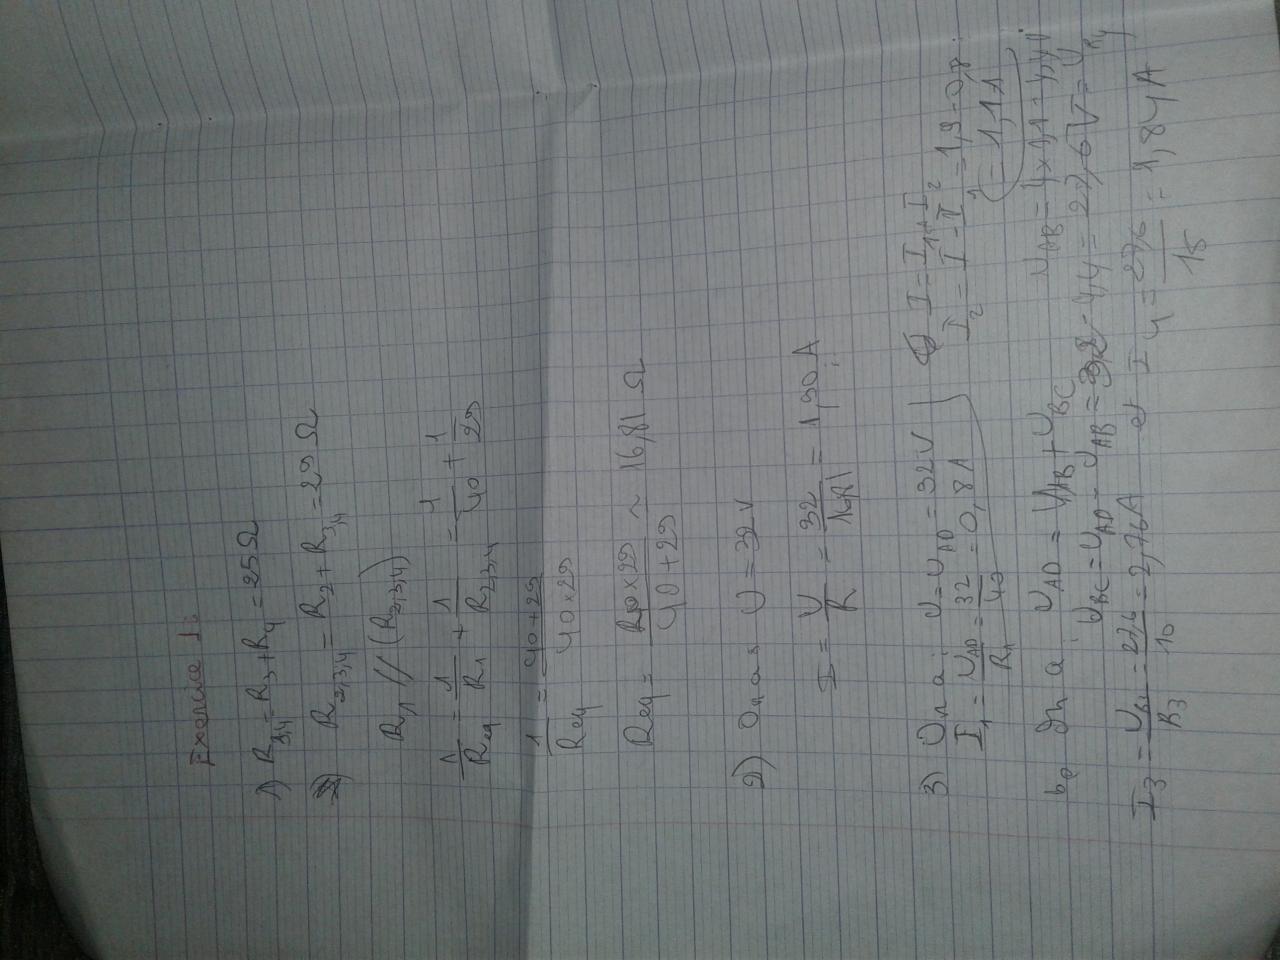 Exercice 1:
1) R3,4 = R3 + R4 = 25 Ω
R2,3,4 = R2 + R3,4 = 29 Ω
R1 // (R2,3,4)
1/Req = 1/R1 + 1/R2,3,4 = 1/40 + 1/29
1/Req = 40+29 / 40×29
Req = 40×29 / 40+29 ~ 16,81 Ω
2) On a U = 32 V
I = U/R = 32/16,81 = 1,90 A
3) On a: U = UAD = 32 V
I1 = UAD/R1 = 32/40 = 0,8 A
I = I1 + I2
I2 = I - I1 = 1,9 - 0,8
= 1,1 A
b. On a: UAD = UAB + UBC
UAB = 4 × 1,1 = 4,4 V
UBC = UAD - UAB = 32 - 4,4 = 27,6 V = UR4
I3 = UBC/R3 = 27,6/10 = 2,76 A et I4 = 27,6/15 = 1,84 A